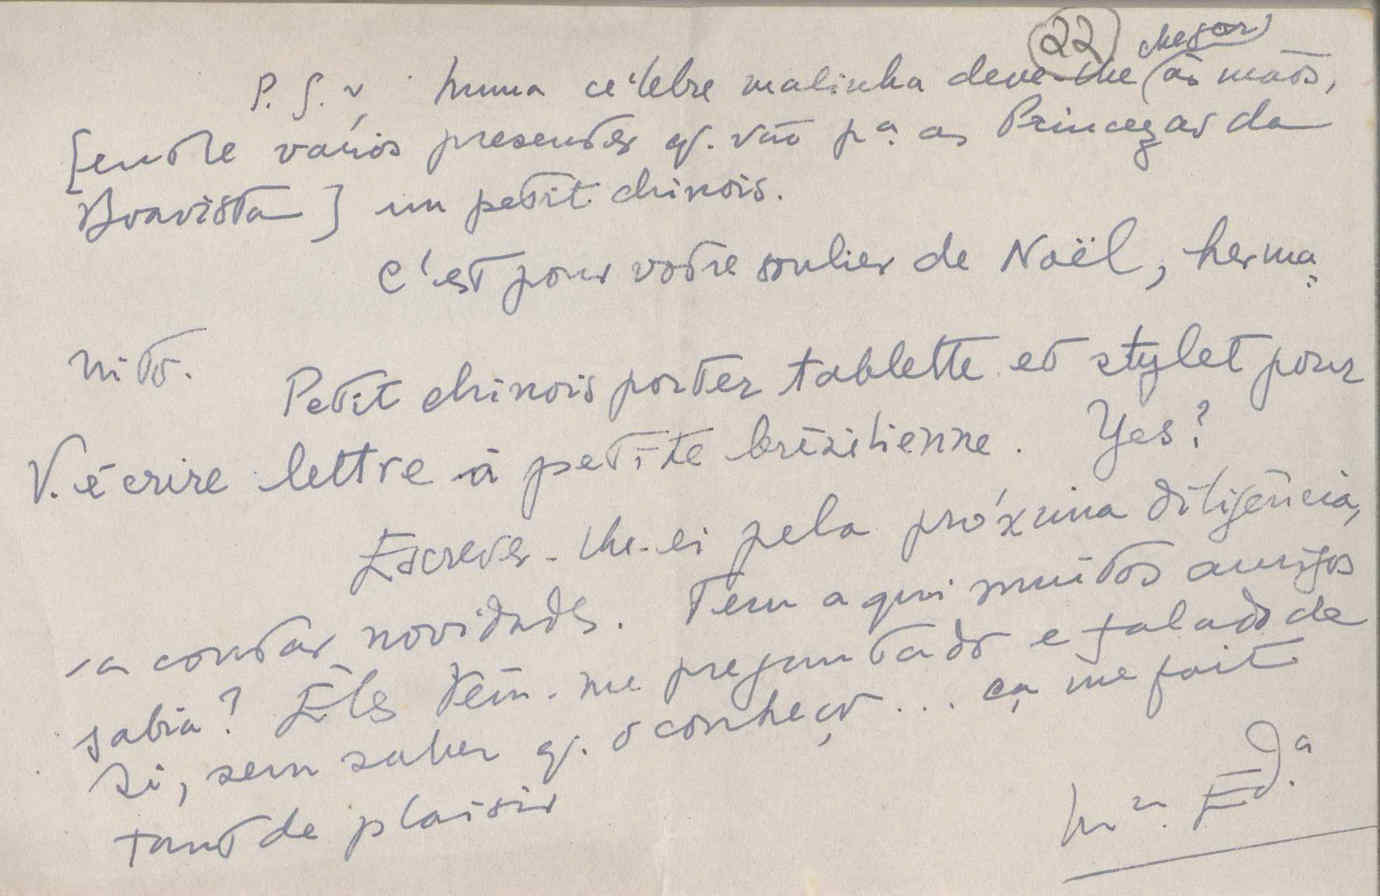 22 chegar
P. S. numa célebre malinha deve-lhe às mãos,
[entre vários presentes q. vão pª. as Princezas da
Boavista] un petit chinois.
C'est pour votre soulier de Noël, herma-
nito.
Petit chinois porter tablette et stylet pour
V. écrire lettre à petite brézilienne. Yes?
Escrever-lhe-ei pela próxima diligência,
a contar novidades. Tem aqui muitos amigos
sabia? Êles têm-me preguntado e falado de
si, sem saber q. o conheço... ça me fait
tant de plaisir
Mª. Edª.